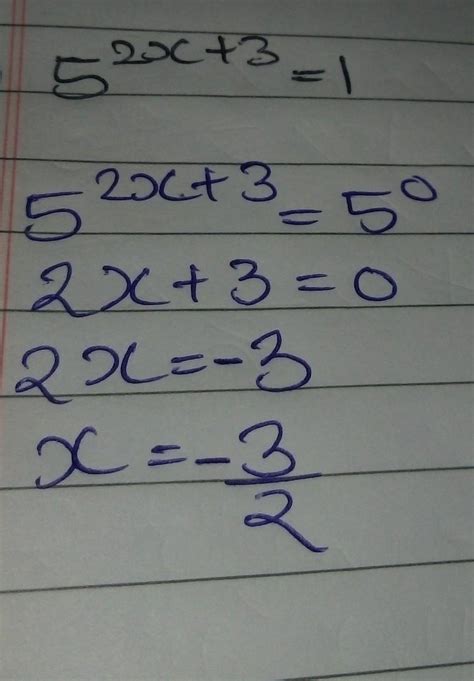 5^{2x+3} = 1
5^{2x+3} = 5^0
2x+3=0
2x=-3
x = -\frac{3}{2}